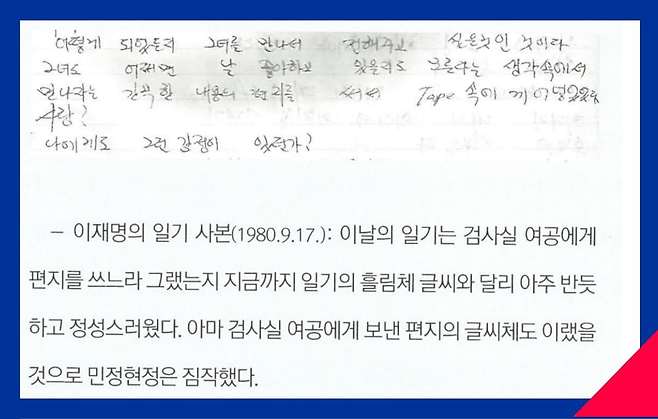 어떻게 되었든지 그녀를 만나서 전해주고 싶은것인 것이다
그녀도 어쩌면 날 좋아하고 있을지도 모른다는 생각속에서
만나자는 간곡한 내용의 편지를 써서 Tape 속에 끼어넣었다
사랑?
나에게도 그런 감정이 있던가?
– 이재명의 일기 사본(1980.9.17.): 이날의 일기는 검사실 여공에게
편지를 쓰느라 그랬는지 지금까지 일기의 흘림체 글씨와 달리 아주 반듯
하고 정성스러웠다. 아마 검사실 여공에게 보낸 편지의 글씨체도 이랬을
것으로 민정현정은 짐작했다.